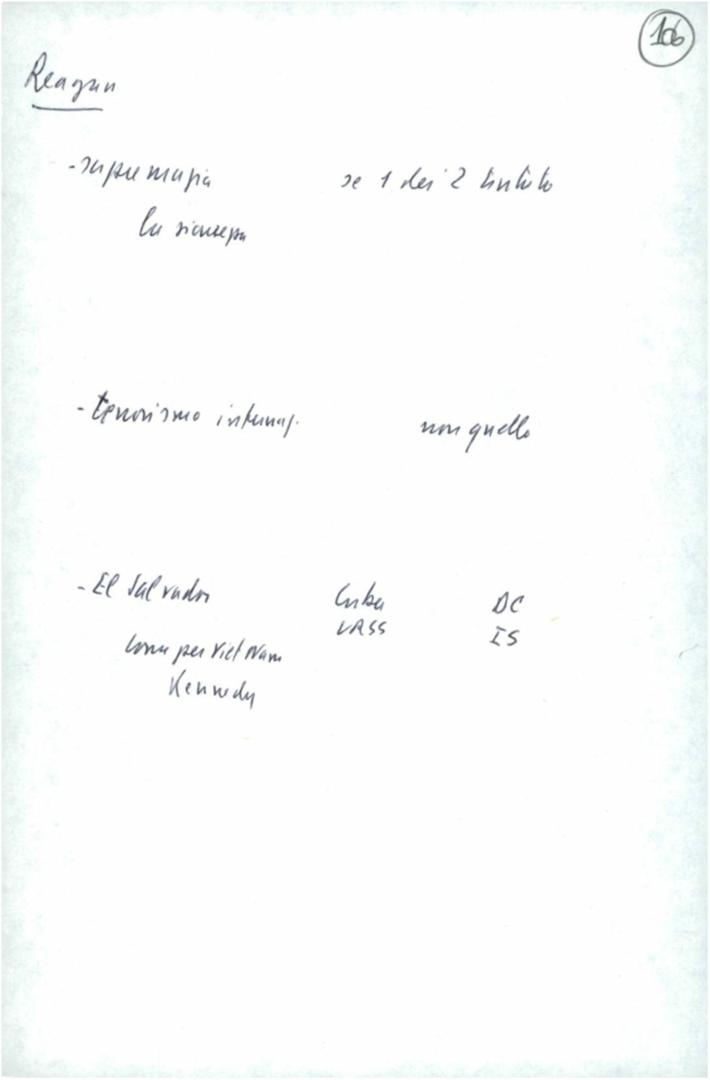 106
Reagan
- supremazia se 1 dei 2
la sicurezza
- terrorismo internaz. non quello
- El Salvador Cuba DC
URSS IS
come per Viet Nam
Kennedy